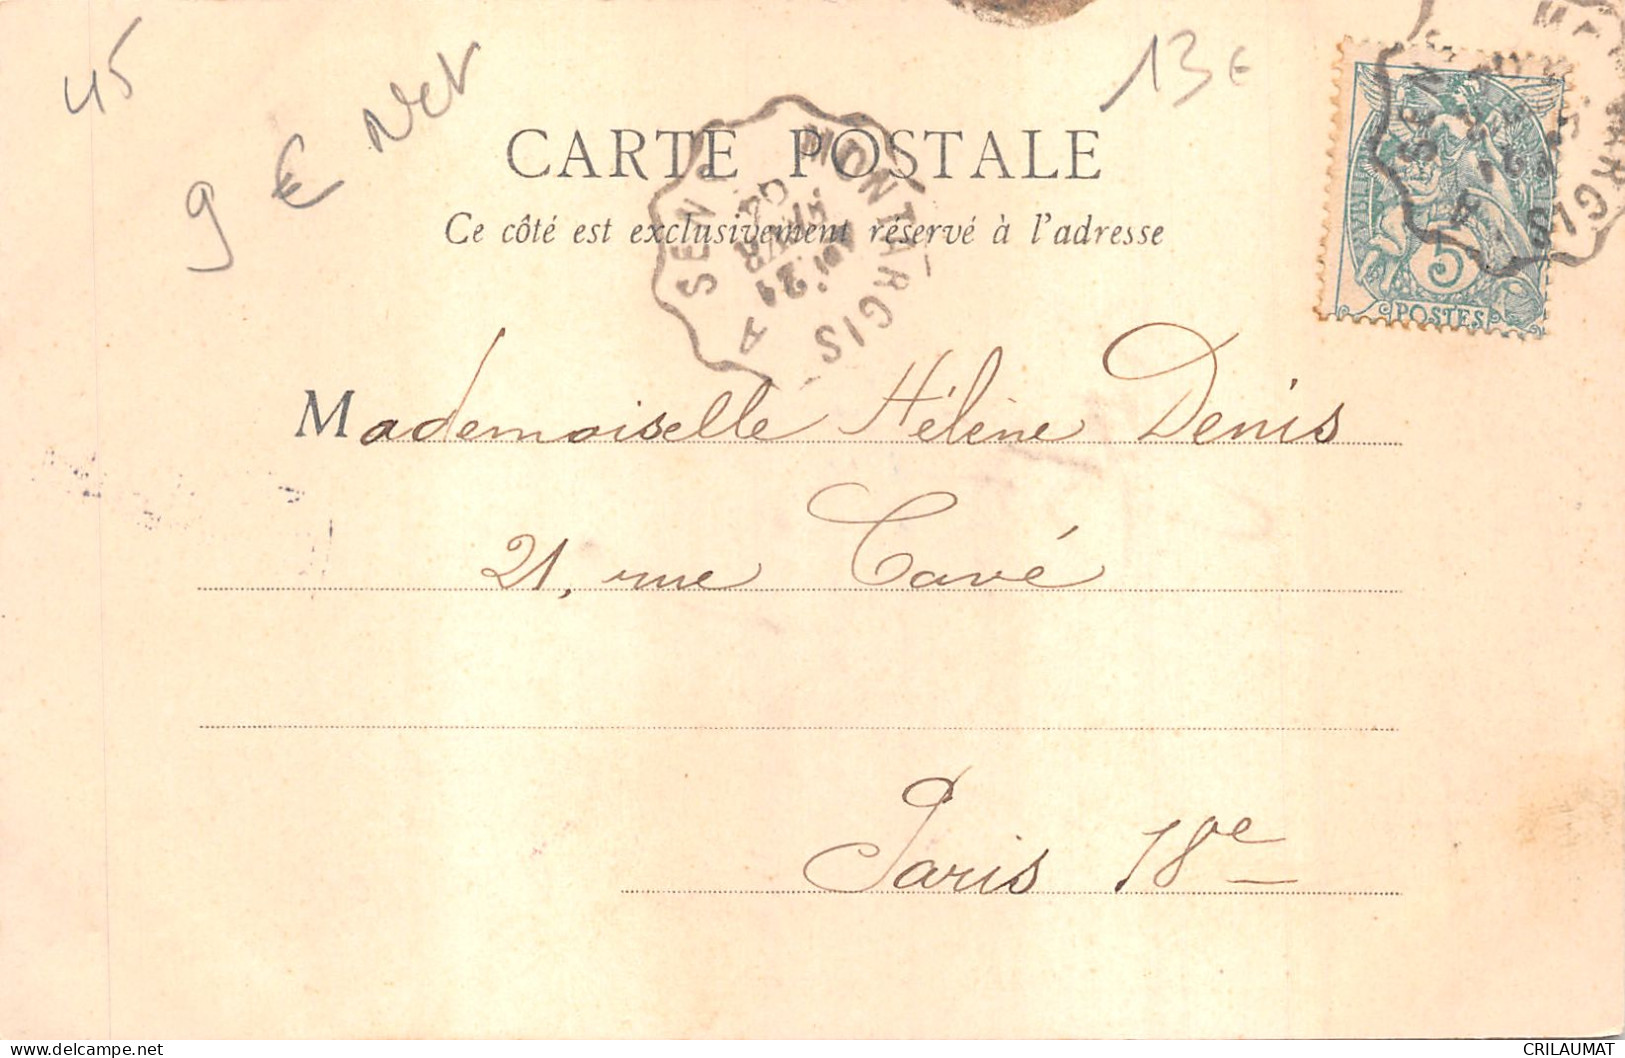 45
9 € Net
13 €
CARTE POSTALE
Ce côté est exclusivement réservé à l'adresse
MONTARGIS A SENS
21
MONTARGIS A SENS
5
POSTES
Mademoiselle Hélène Denis
21, rue Cavé
Paris 18e
CRILAUMAT